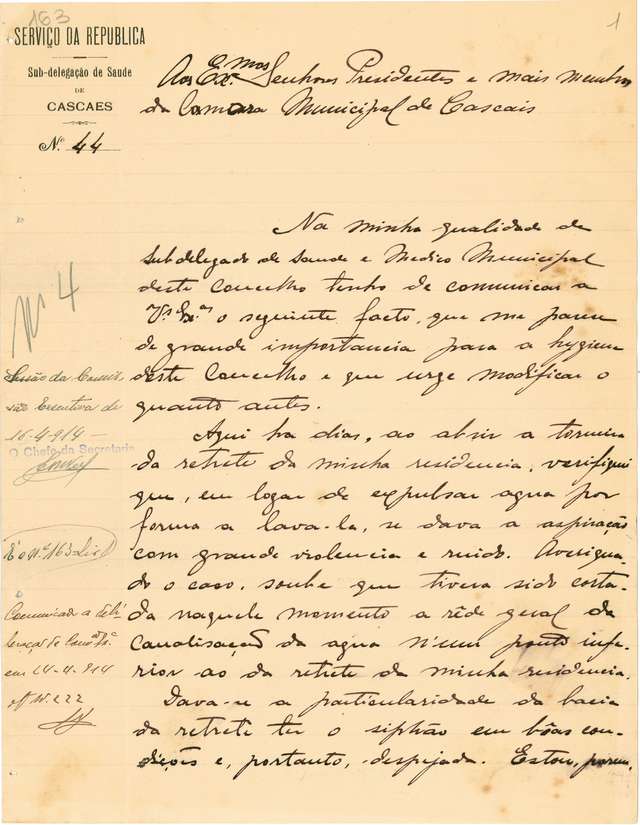 163
1
SERVIÇO DA REPUBLICA
Sub-delegação de Saude
DE
CASCAES
N.º 44
Aos Ex.mos Senhores Presidentes e mais membros
da Camara Municipal de Cascais
Na minha qualidade de
Subdelegado de Saude e Medico Municipal
deste Concelho tenho de comunicar a
V.as Ex.as o seguinte facto, que me parece
de grande importancia para a hygiene
deste Concelho e que urge modificar o
quanto antes.
Aqui ha dias, ao abrir a torneira
da retrete da minha residencia, verifiquei
que, em logar de expulsar agua por
forma a lava-la, se dava a aspiração
com grande violencia e ruido. Averigua-
do o caso, soube que tivera sido corta-
da naquele momento a rêde geral da
canalisação da agua n'um ponto infe-
rior ao da retrete da minha residencia.
Dava-se a particularidade da bacia
da retrete ter o siphão em bôas con-
dições e, portanto, despejada. Estou, porem,
Nº 4
Sessão da Comis-
são Executiva de
16-4-914-
O Chefe da Secretaria
É o nº 163-
Comunicada a deli-
beração
em 14-4-914
of. Nº 222